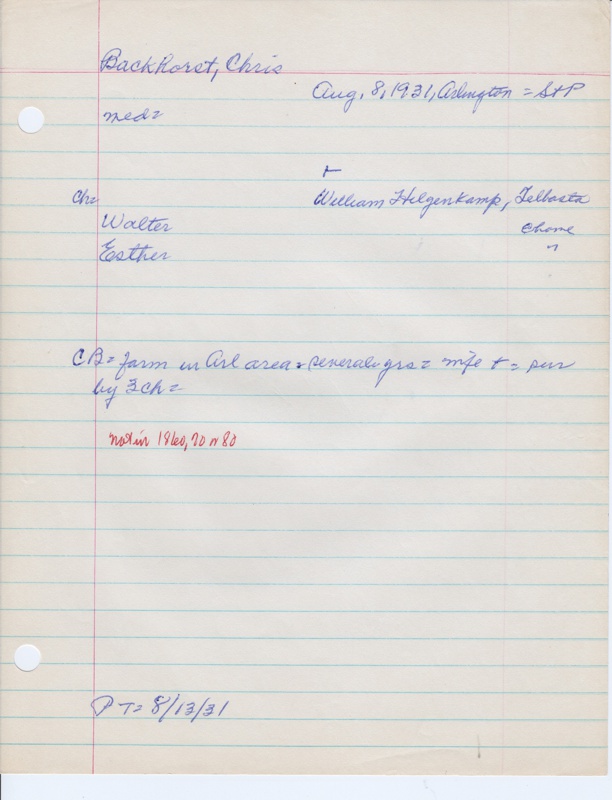 Backhorst, Chris
Aug, 8, 1931, Arlington = S+P
med=
+
ch= William Hilgenkamp, Telbasta
Walter @home
Esther "
CB= farm in Arl area x several yrs = wife + = sur
by 3 ch =
not in 1860, 70 or 80
PT= 8/13/31